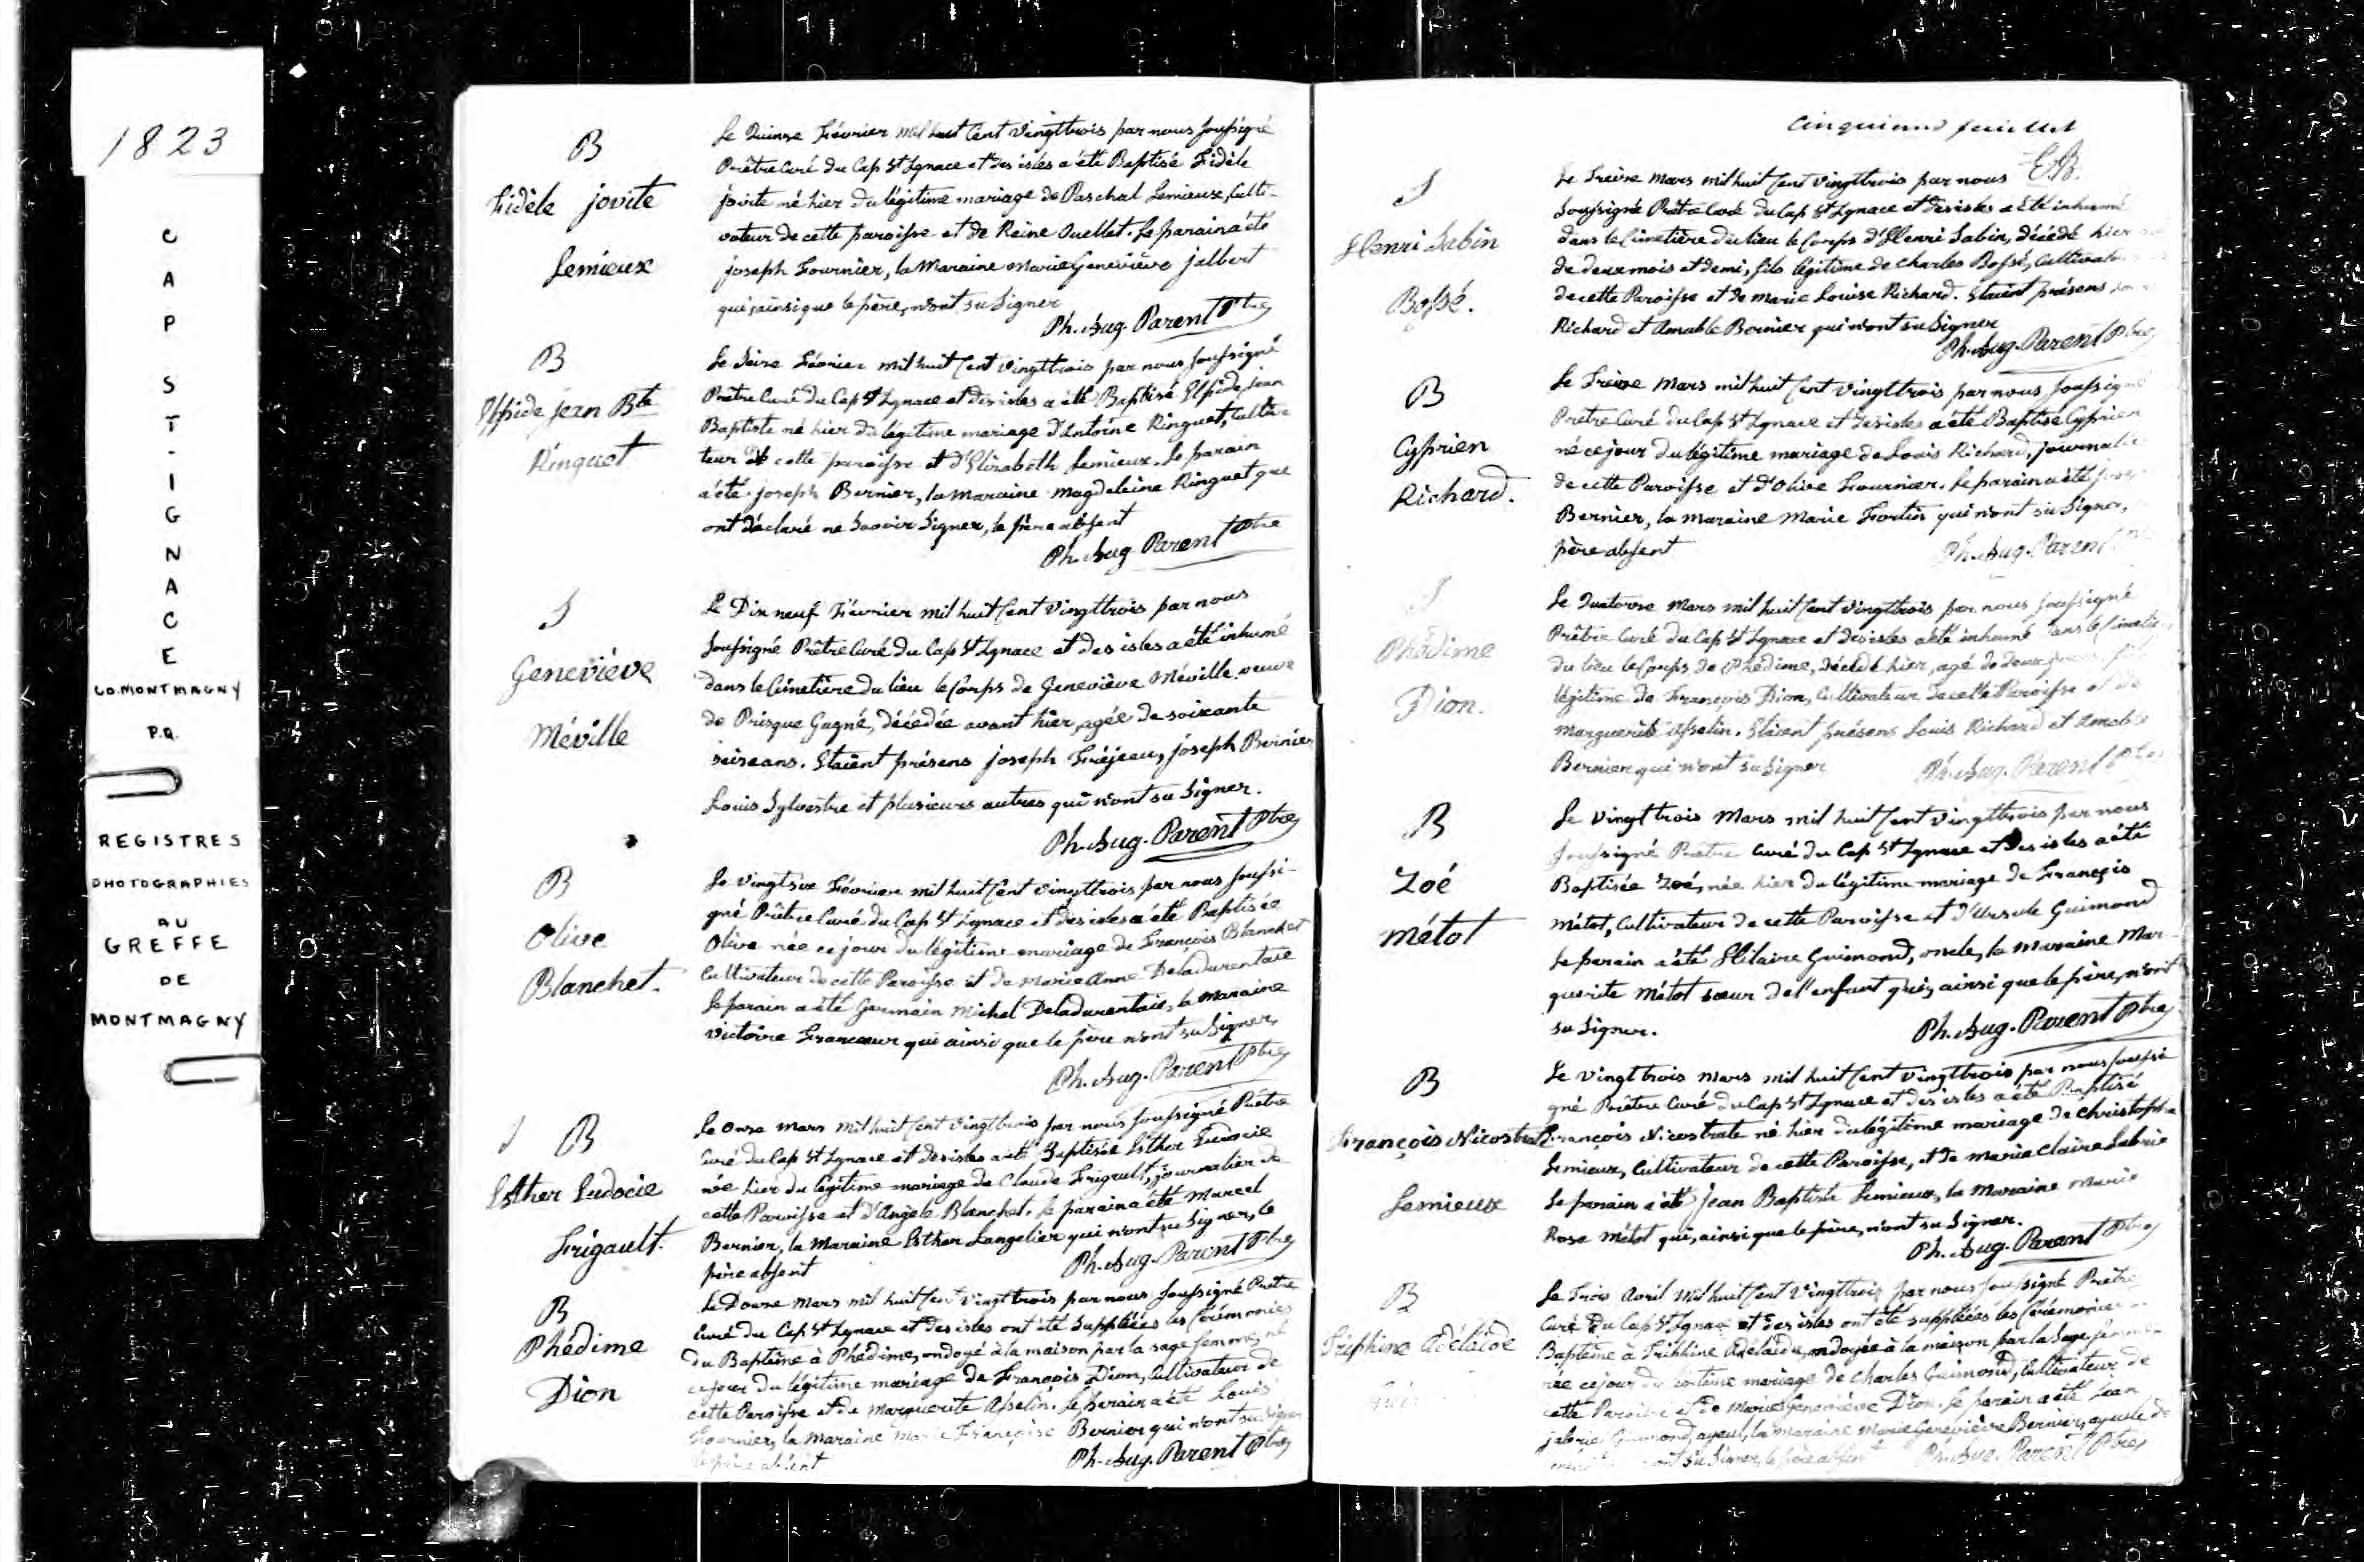 1823
CAP ST-IGNACE
CO. MONTMAGNY
P.Q.
REGISTRES
PHOTOGRAPHIES
AU
GREFFE
DE
MONTMAGNY
B
Fidèle jovite
Lemieux
Le Quinze Février mil huit Cent vingttrois par nous soussigné
Prêtre Curé du Cap St Ignace et des isles a été Baptisé Fidèle
jovite né hier du légitime mariage de Paschal Lemieux, Culti-
vateur de cette paroisse et de Reine Ouellet. Le parain a été
joseph Fournier, la Maraine Marie Geneviève jalbert
qui, ainsi que le père, n'ont su Signer
Ph. Aug. Parent Ptre
B
Elpide jean Bte
Ringuet
Le Seize Février mil huit Cent vingttrois par nous soussigné
Prêtre Curé du Cap St Ignace et des isles a été Baptisé Elpide jean
Baptiste né hier du légitime mariage d'Antoine Ringuet, Cultiva
teur de cette paroisse et d'Elizabeth Lemieux. Le parain
a été joseph Bernier, la Maraine Magdeleine Ringuet que
ont déclaré ne Savoir Signer, le père absent
Ph. Aug. Parent Ptre
S
Geneviève
Méville
Le Dix neuf Février mil huit Cent vingttrois par nous
Soussigné Prêtre Curé du Cap St Ignace et des isles a été inhumé
dans le Cimetière du lieu le Corps de Geneviève Méville veuve
de Prisque Gagné, décédée avant hier, agée de soixante
seize ans. Etaient présens joseph Fréjeau, joseph Bernier
Louis Sylvestre et plusieurs autres qui n'ont su Signer.
Ph. Aug. Parent Ptre
B
Olive
Blanchet.
Le vingt six Février mil huit Cent vingttrois par nous soussi-
gné Prêtre Curé du Cap St Ignace et des isles a été Baptisée
Olive née ce jour du légitime mariage de François Blanchet
Cultivateur de cette Paroisse et de Marie Anne Deladurentaie
Le parain a été Germain Michel Deladurentaie, la Maraine
Victoire Francoeur qui ainsi que le père n'ont su Signer,
Ph. Aug. Parent Ptre
S B
Esther Eudocie
Frigault.
Le Onze Mars mil huit Cent vingttrois par nous soussigné Prêtre
Curé du Cap St Ignace et des isles a été Baptisée Esther Eudocie
née hier du légitime mariage de Claude Frigault, journalier de
cette Paroisse et d'Angèle Blanchet. Le parain a été Marcel
Bernier, la Maraine Esther Langelier qui n'ont su Signer, le
père absent
Ph. Aug. Parent Ptre
B
Phédime
Dion
Le Douze Mars mil huit Cent vingttrois par nous Soussigné Prêtre
Curé du Cap St Ignace et des isles ont été Suppléées les Cérémonies
du Baptême à Phédime, ondoyé à la maison par la sage femme, né
ce jour du légitime mariage de François Dion, Cultivateur de
cette Paroisse et de Marguerite Asselin. Le parain a été Louis
Fournier, la Maraine Marie Françoise Bernier qui n'ont su signer
le père absent
Ph. Aug. Parent Ptre
Cinquième feuillet
E.B.
S
Henri Sabin
Bossé.
Le Treize Mars mil huit Cent vingttrois par nous
Soussigné Prêtre Curé du Cap St Ignace et des isles a été inhumé
dans le Cimetière du lieu le Corps d'Henri Sabin, décédé hier
de deux mois et demi, fils légitime de Charles Bossé, Cultivateur
de cette Paroisse et de Marie Louise Richard. Etaient présens
Richard et Amable Bernier qui n'ont su Signer
Ph. Aug. Parent Ptre
B
Cyprien
Richard.
Le Treize Mars mil huit Cent vingttrois par nous Soussigné
Prêtre Curé du Cap St Ignace et des isles a été Baptisé Cyprien
né ce jour du légitime mariage de Louis Richard, journalie
de cette Paroisse et d'Olive Fournier. Le parain a été
Bernier, la maraine Marie Fortin qui n'ont su Signer,
père absent
Ph. Aug. Parent
S
Phédime
Dion.
Le Quatorze Mars mil huit Cent vingttrois par nous soussigné
Prêtre Curé du Cap St Ignace et des isles a été inhumé dans le Cimetière
du lieu le Corps de Phédime, décédé hier, agé de deux
légitime de François Dion, Cultivateur de cette Paroisse et de
Marguerite Asselin. Etaient présens Louis Richard et Amable
Bernier qui n'ont su Signer
Ph. Aug. Parent Ptre
B
Zoé
Métot
Le vingt trois Mars mil huit Cent vingttrois par nous
Soussigné Prêtre Curé du Cap St Ignace et des isles a été
Baptisée Zoé, née hier du légitime mariage de François
Métot, Cultivateur de cette Paroisse et d'Ursule Guimond
Le parain a été Hilaire Guimond, oncle, la Maraine Mar-
guerite Métot soeur de l'enfant qui, ainsi que le père, n'ont
su Signer.
Ph. Aug. Parent Ptre
B
François Nicostrate
Lemieux
Le vingt trois Mars mil huit Cent vingttrois par nous soussi
gné Prêtre Curé du Cap St Ignace et des isles a été Baptisé
François Nicostrate né hier du légitime mariage de Christophe
Lemieux, Cultivateur de cette Paroisse, et de Marie Claire Labrie
Le parain a été jean Baptiste Lemieux, la Maraine Marie
Rose Métot qui, ainsi que le père, n'ont su Signer.
Ph. Aug. Parent Ptre
B
Triphine Adélaide
Le Trois Avril mil huit Cent vingttrois par nous soussigné Prêtre
Curé du Cap St Ignace et des isles ont été suppléées les Cérémonies
Baptême à Triphine Adélaïde, ondoyée à la maison par la Sage femme
née ce jour du légitime mariage de Charles Guimond, Cultivateur de
cette Paroisse et de Marie Geneviève Dion. Le parain a été jean
jabrie Guimond, ayeul, la maraine Marie Geneviève Bernier, ayeule de
n'ont su Signer, le père absent
Ph. Aug. Parent Ptre